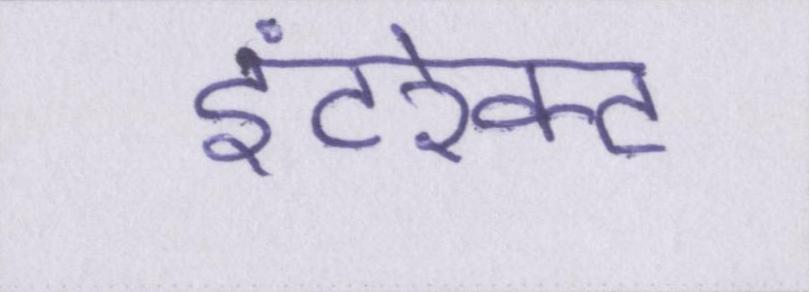 इंटरेक्ट